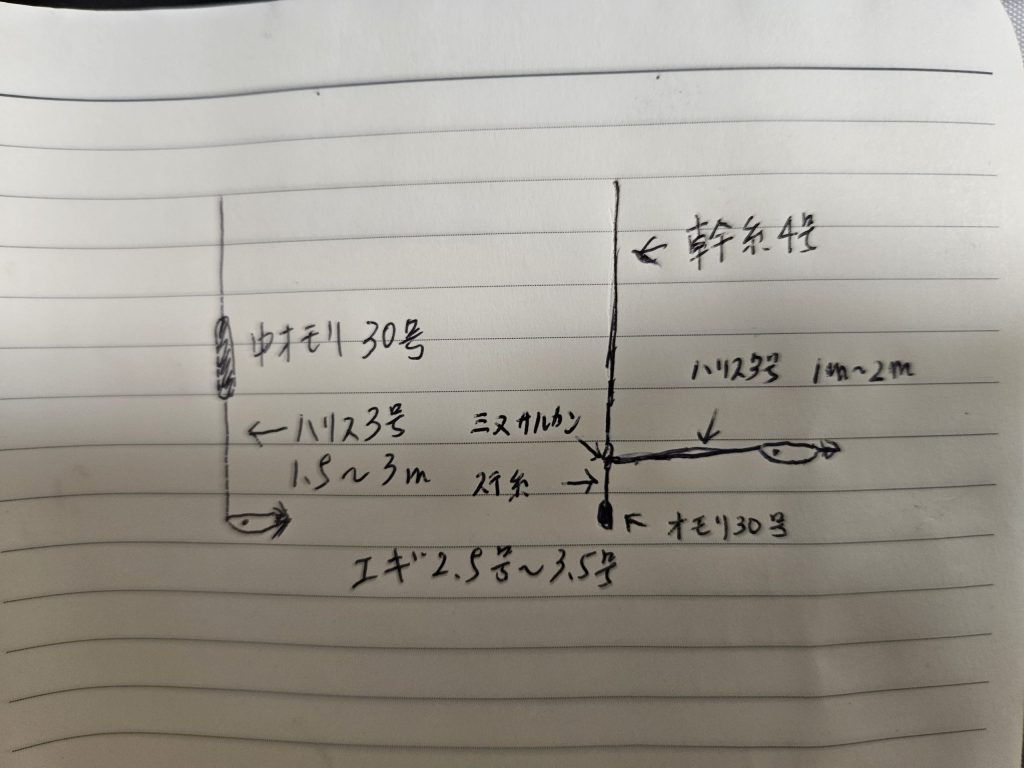 中オモリ 30号
← ハリス3号
1.5～3m
← 幹糸4号
ハリス3号 1m～2m
ミヌサルカン
ステ糸 →
オモリ30号
エギ2.5号～3.5号